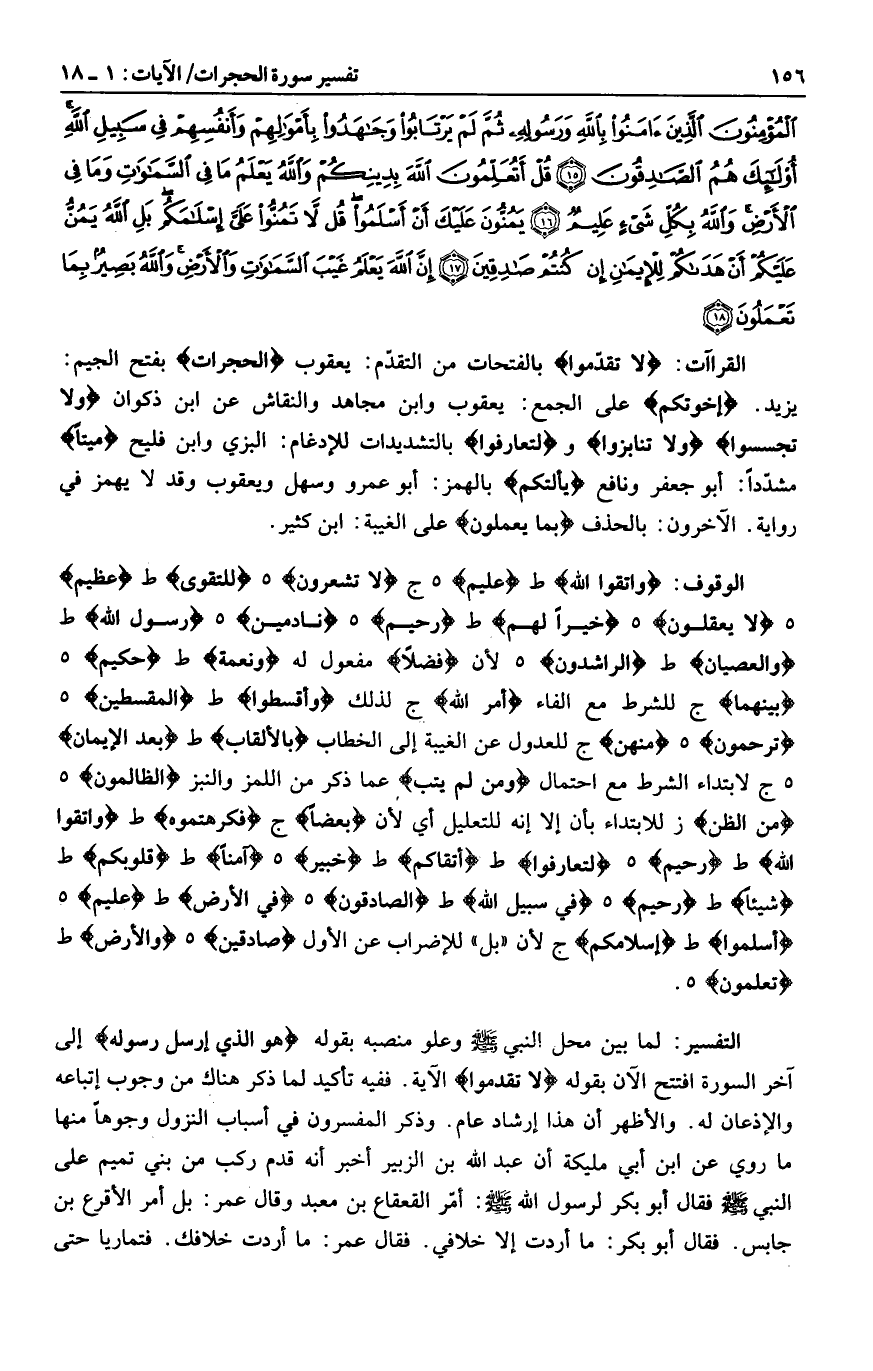 ١٥٦ تفسير سورة الحجرات/ الآيات: ١ ـ ١٨
ٱلْمُؤْمِنُونَ ٱلَّذِينَ ءَامَنُوا۟ بِٱللَّهِ وَرَسُولِهِۦ ثُمَّ لَمْ يَرْتَابُوا۟ وَجَـٰهَدُوا۟ بِأَمْوَٰلِهِمْ وَأَنفُسِهِمْ فِى سَبِيلِ ٱللَّهِ ۚ
أُو۟لَـٰٓئِكَ هُمُ ٱلصَّـٰدِقُونَ ﴿١٥﴾ قُلْ أَتُعَلِّمُونَ ٱللَّهَ بِدِينِكُمْ وَٱللَّهُ يَعْلَمُ مَا فِى ٱلسَّمَـٰوَٰتِ وَمَا فِى
ٱلْأَرْضِ ۚ وَٱللَّهُ بِكُلِّ شَىْءٍ عَلِيمٌ ﴿١٦﴾ يَمُنُّونَ عَلَيْكَ أَنْ أَسْلَمُوا۟ ۖ قُل لَّا تَمُنُّوا۟ عَلَىَّ إِسْلَـٰمَكُم ۖ بَلِ ٱللَّهُ يَمُنُّ
عَلَيْكُمْ أَنْ هَدَىٰكُمْ لِلْإِيمَـٰنِ إِن كُنتُمْ صَـٰدِقِينَ ﴿١٧﴾ إِنَّ ٱللَّهَ يَعْلَمُ غَيْبَ ٱلسَّمَـٰوَٰتِ وَٱلْأَرْضِ ۚ وَٱللَّهُ بَصِيرٌۢ بِمَا
تَعْمَلُونَ ﴿١٨﴾
القراآت: ﴿لا تقدّموا﴾ بالفتحات من التقدّم: يعقوب ﴿الحجرات﴾ بفتح الجيم:
يزيد. ﴿إخوتكم﴾ على الجمع: يعقوب وابن مجاهد والنقاش عن ابن ذكوان ﴿ولا
تجسسوا﴾ ﴿ولا تنابزوا﴾ و ﴿لتعارفوا﴾ بالتشديدات للإدغام: البزي وابن فليح ﴿ميتاً﴾
مشدّداً: أبو جعفر ونافع ﴿يألتكم﴾ بالهمز: أبو عمرو وسهل ويعقوب وقد لا يهمز في
رواية. الآخرون: بالحذف ﴿بما يعملون﴾ على الغيبة: ابن كثير.
الوقوف: ﴿واتقوا الله﴾ ط ﴿عليم﴾ ٥ ج ﴿لا تشعرون﴾ ٥ ﴿للتقوى﴾ ط ﴿عظيم﴾
٥ ﴿لا يعقلون﴾ ٥ ﴿خيراً لهم﴾ ط ﴿رحيم﴾ ٥ ﴿نادمين﴾ ٥ ﴿رسول الله﴾ ط
﴿والعصيان﴾ ط ﴿الراشدون﴾ ٥ لأن ﴿فضلاً﴾ مفعول له ﴿ونعمة﴾ ط ﴿حكيم﴾ ٥
﴿بينهما﴾ ج للشرط مع الفاء ﴿أمر الله﴾ ج لذلك ﴿وأقسطوا﴾ ط ﴿المقسطين﴾ ٥
﴿ترحمون﴾ ٥ ﴿منهن﴾ ج للعدول عن الغيبة إلى الخطاب ﴿بالألقاب﴾ ط ﴿بعد الإيمان﴾
٥ ج لابتداء الشرط مع احتمال ﴿ومن لم يتب﴾ عما ذكر من اللمز والنبز ﴿الظالمون﴾ ٥
﴿من الظن﴾ ز للابتداء بأن إلا إنه للتعليل أي لأن ﴿بعضاً﴾ ج ﴿فكرهتموه﴾ ط ﴿واتقوا
الله﴾ ط ﴿رحيم﴾ ٥ ﴿لتعارفوا﴾ ط ﴿أتقاكم﴾ ط ﴿خبير﴾ ٥ ﴿آمناً﴾ ط ﴿قلوبكم﴾ ط
﴿شيئاً﴾ ط ﴿رحيم﴾ ٥ ﴿في سبيل الله﴾ ط ﴿الصادقون﴾ ٥ ﴿في الأرض﴾ ط ﴿عليم﴾ ٥
﴿أسلموا﴾ ط ﴿إسلامكم﴾ ج لأن «بل» للإضراب عن الأول ﴿صادقين﴾ ٥ ﴿والأرض﴾ ط
﴿تعلمون﴾ ٥ .
التفسير: لما بين محل النبي ﷺ وعلو منصبه بقوله ﴿هو الذي إرسل رسوله﴾ إلى
آخر السورة افتتح الآن بقوله ﴿لا تقدموا﴾ الآية. ففيه تأكيد لما ذكر هناك من وجوب إتباعه
والإذعان له. والأظهر أن هذا إرشاد عام. وذكر المفسرون في أسباب النزول وجوهاً منها
ما روي عن ابن أبي مليكة أن عبد الله بن الزبير أخبر أنه قدم ركب من بني تميم على
النبي ﷺ فقال أبو بكر لرسول الله ﷺ: أمّر القعقاع بن معبد وقال عمر: بل أمر الأقرع بن
جابس. فقال أبو بكر: ما أردت إلا خلافي. فقال عمر: ما أردت خلافك. فتماريا حتى